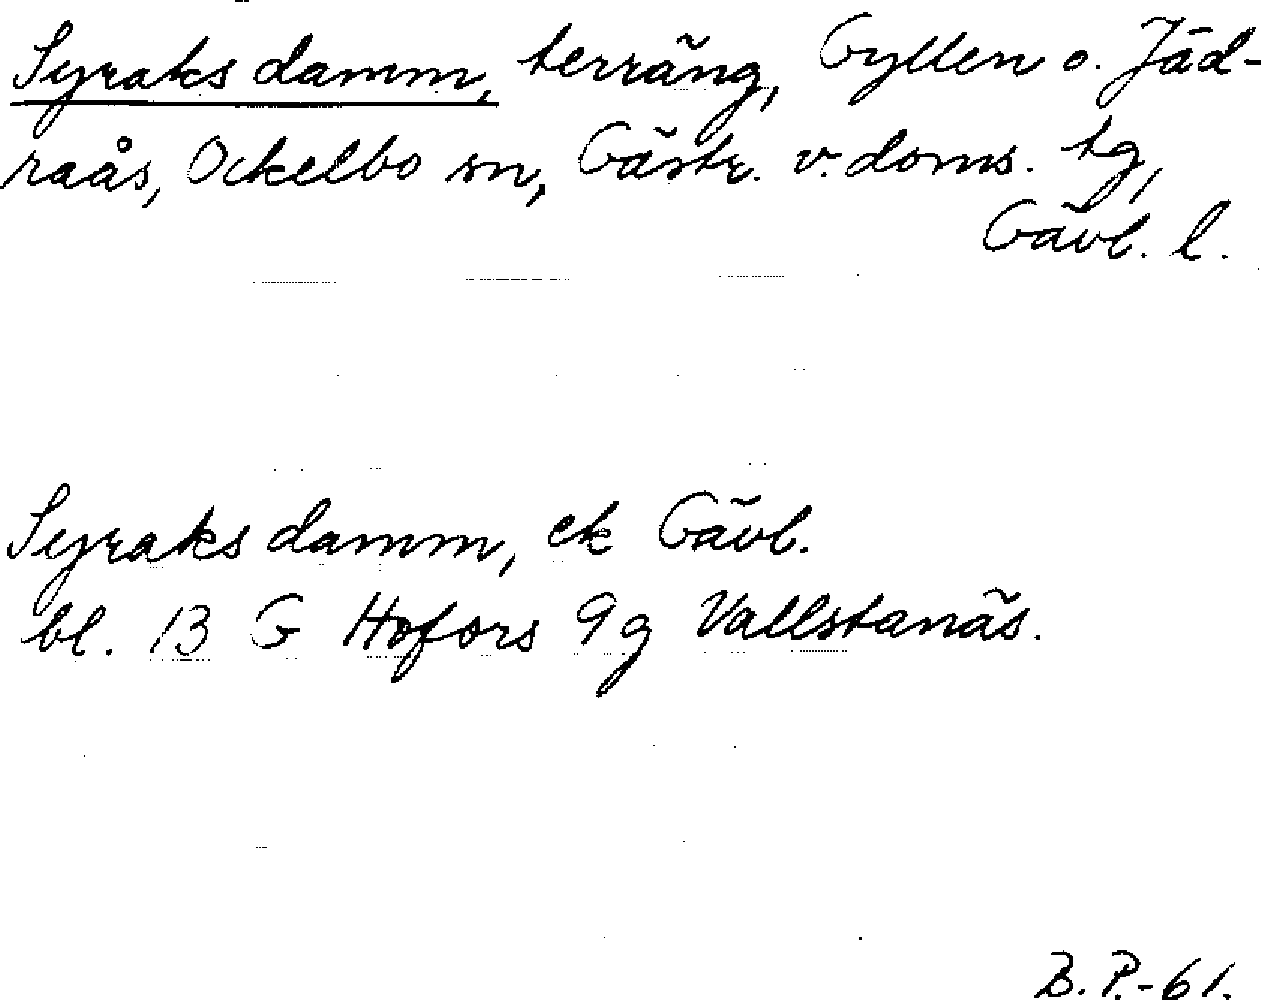 Syraks damm, terräng, Gyllen o. Jäd-
raås, Ockelbo sn, Gästr. v. doms. tg,
Gävl. l.
Syraks damm, ek Gävl.
bl. 13 G Hofors 9g Vallstanäs.
B. P.-61.